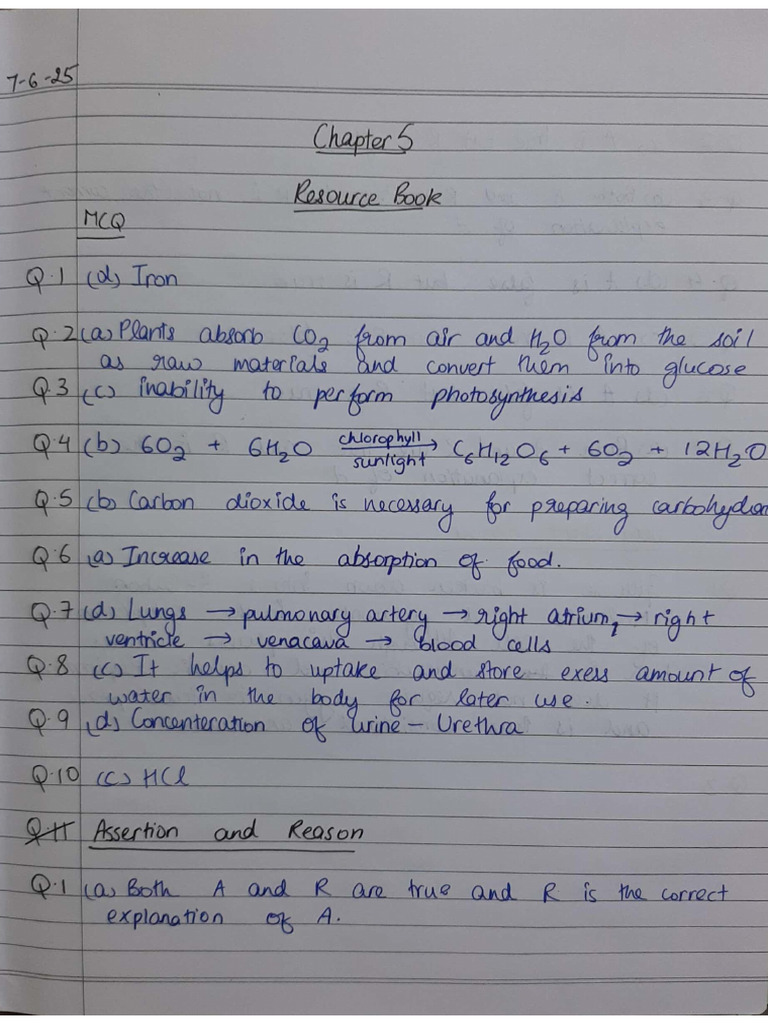 7-6-25
Chapter 5
Resource Book
MCQ
Q.1 (d) Iron
Q.2 (a) Plants absorb CO2 from air and H2O from the soil
as raw materials and convert them into glucose
Q3 (c) inability to perform photosynthesis
Q.4 (b) 6O2 + 6H2O chlorophyll sunlight → C6H12O6 + 6O2 + 12H2O
Q.5 (b) Carbon dioxide is necessary for preparing carbohydra
Q.6 (a) Increase in the absorption of food.
Q.7 (d) Lungs → pulmonary artery → right atrium, → right
ventricle → venacava → blood cells
Q.8 (c) It helps to uptake and store exess amount of
water in the body for later use.
Q.9 (d) Concenteration of urine - Urethra
Q.10 (c) HCl
Q.11 Assertion and Reason
Q.1 (a) Both A and R are true and R is the correct
explanation of A.